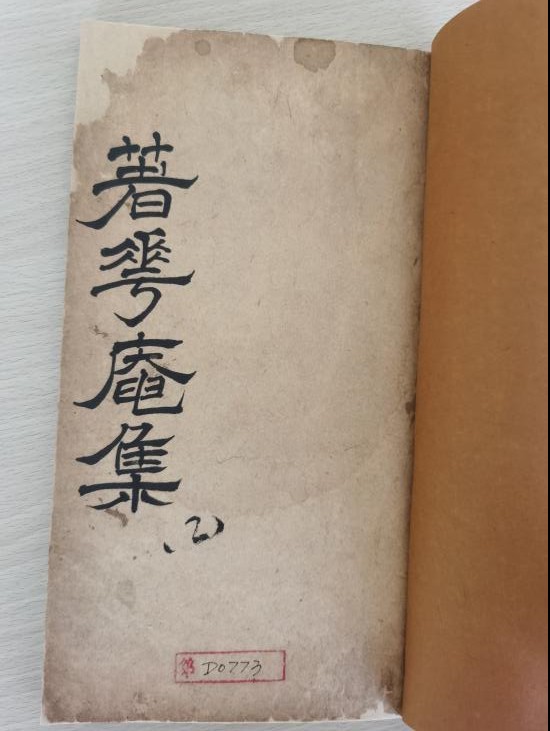 著花庵集
D0773